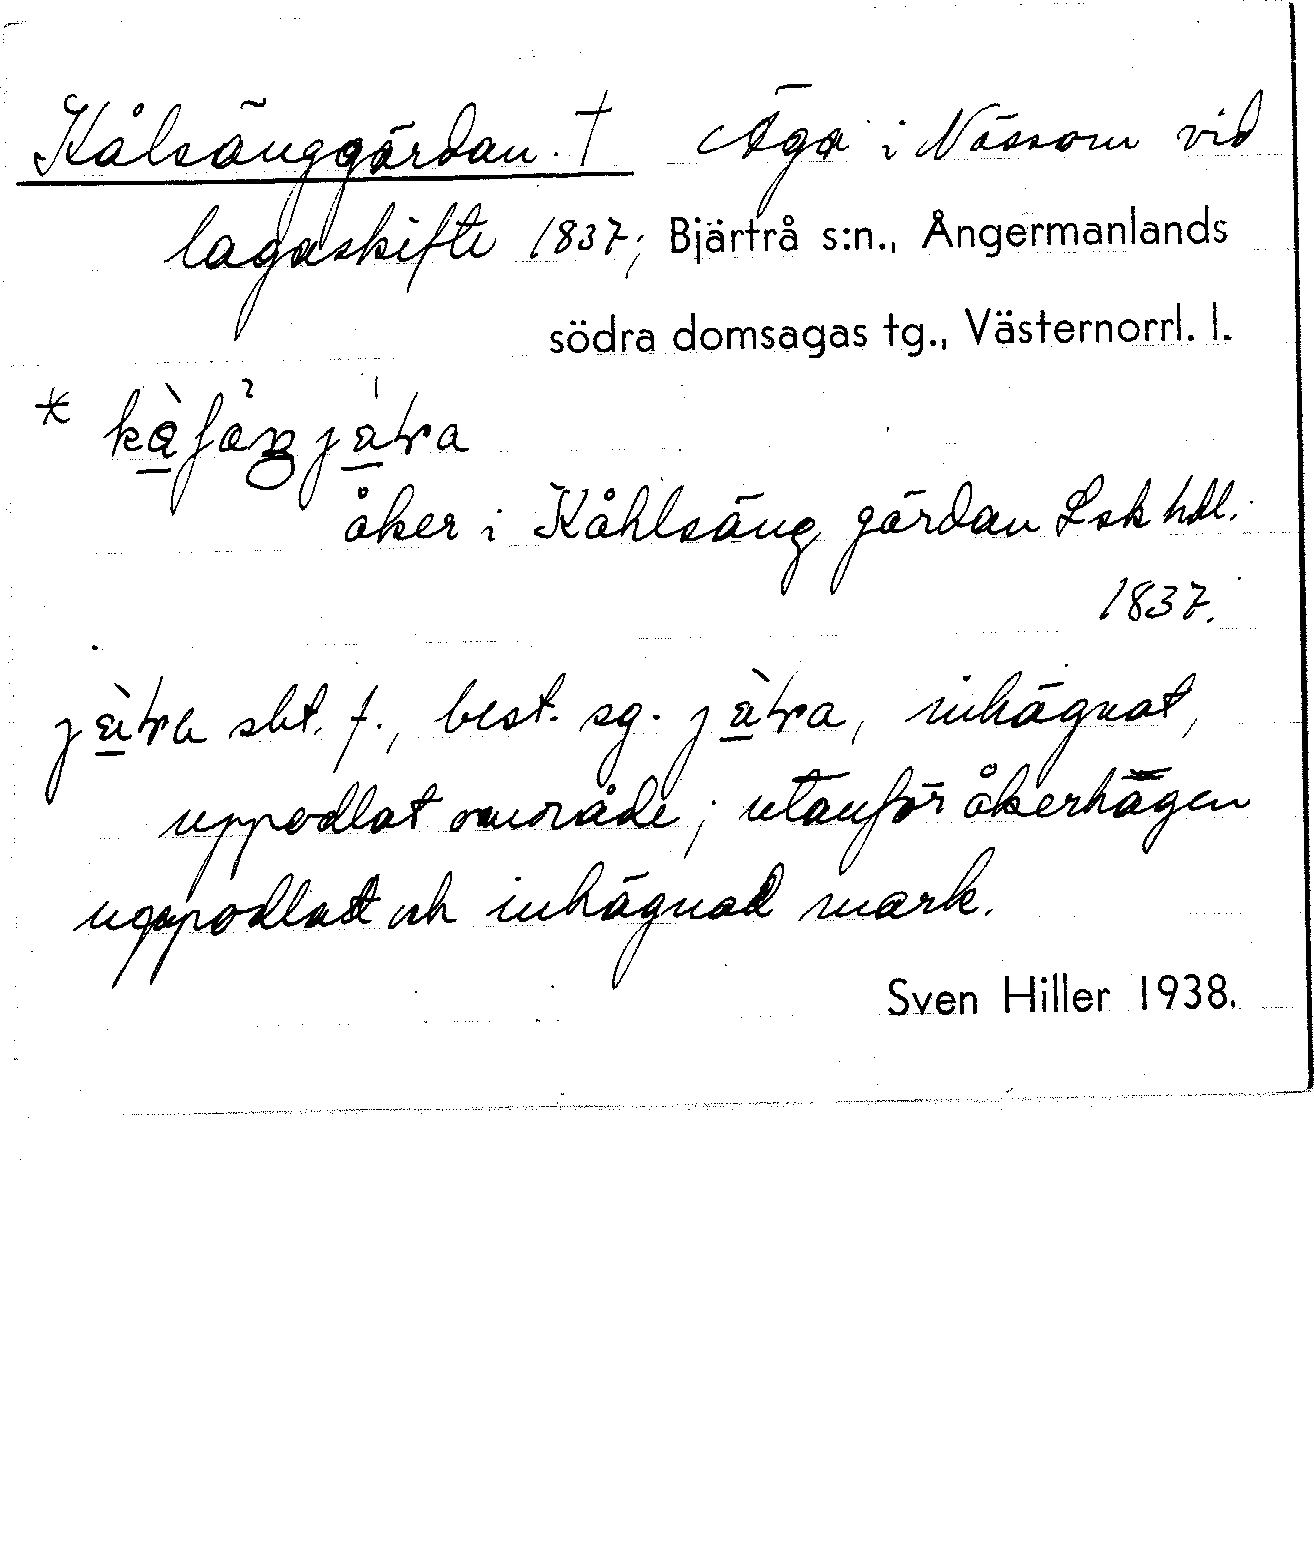 Kålsänggärdan. † Äga i Nässom vid
lagaskifte 1837; Bjärtrå s:n., Ångermanlands
södra domsagas tg., Västernorrl. l.
*
åker i Kåhlsäng gärdan Lsk hdl.
1837.
sbt. f., best. sg. inhägnat,
uppodlat område; utanför åkerhägen
uppodlad och inhägnad mark.
Sven Hiller 1938.